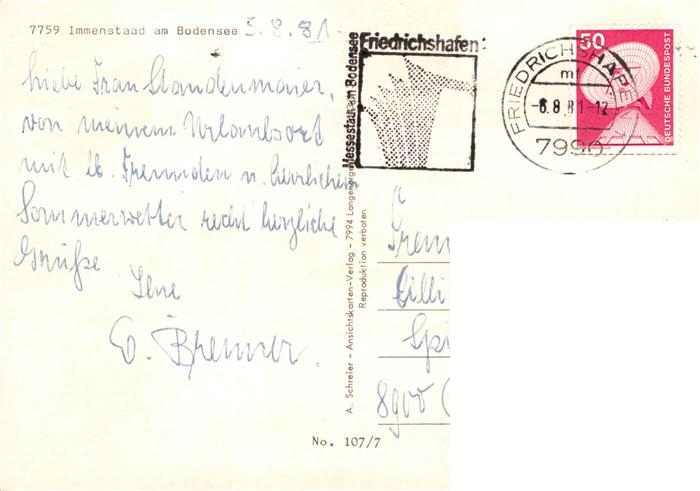 7759 Immenstaad am Bodensee 5.8.81
Liebe Frau Standenmaier,
von meinem Urlaubsort
mit lb. Freunden u. herrlichem
Sommerwetter recht herzliche
Grüße
Ihre
E. Brenner.
Messestadt am Bodensee
Friedrichshafen
FRIEDRICHSHAFEN
-6.8.81-12
7990
50
DEUTSCHE BUNDESPOST
A. Schreier - Ansichtskarten-Verlag - 7994 Langenargen
Reproduktion verboten
Cilli
8900
No. 107/7